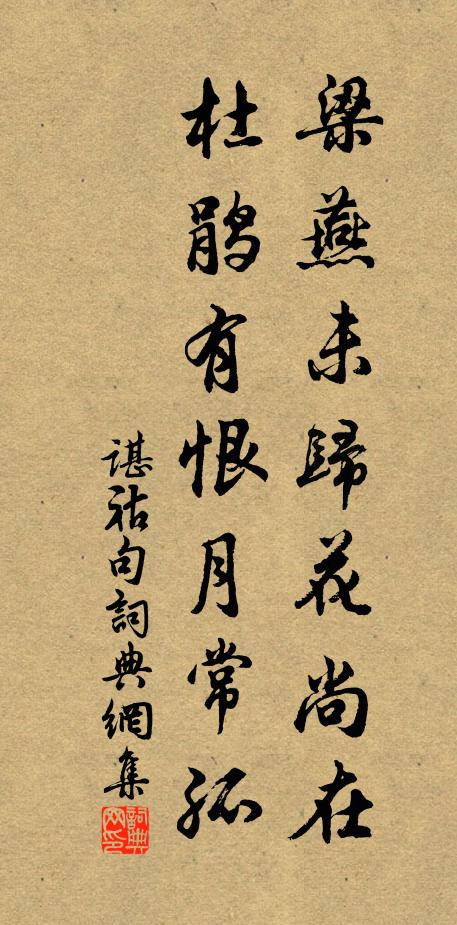 梁燕未歸花尚在
杜鹃有恨月常孤
谌祜句詞典網集
詞典网印